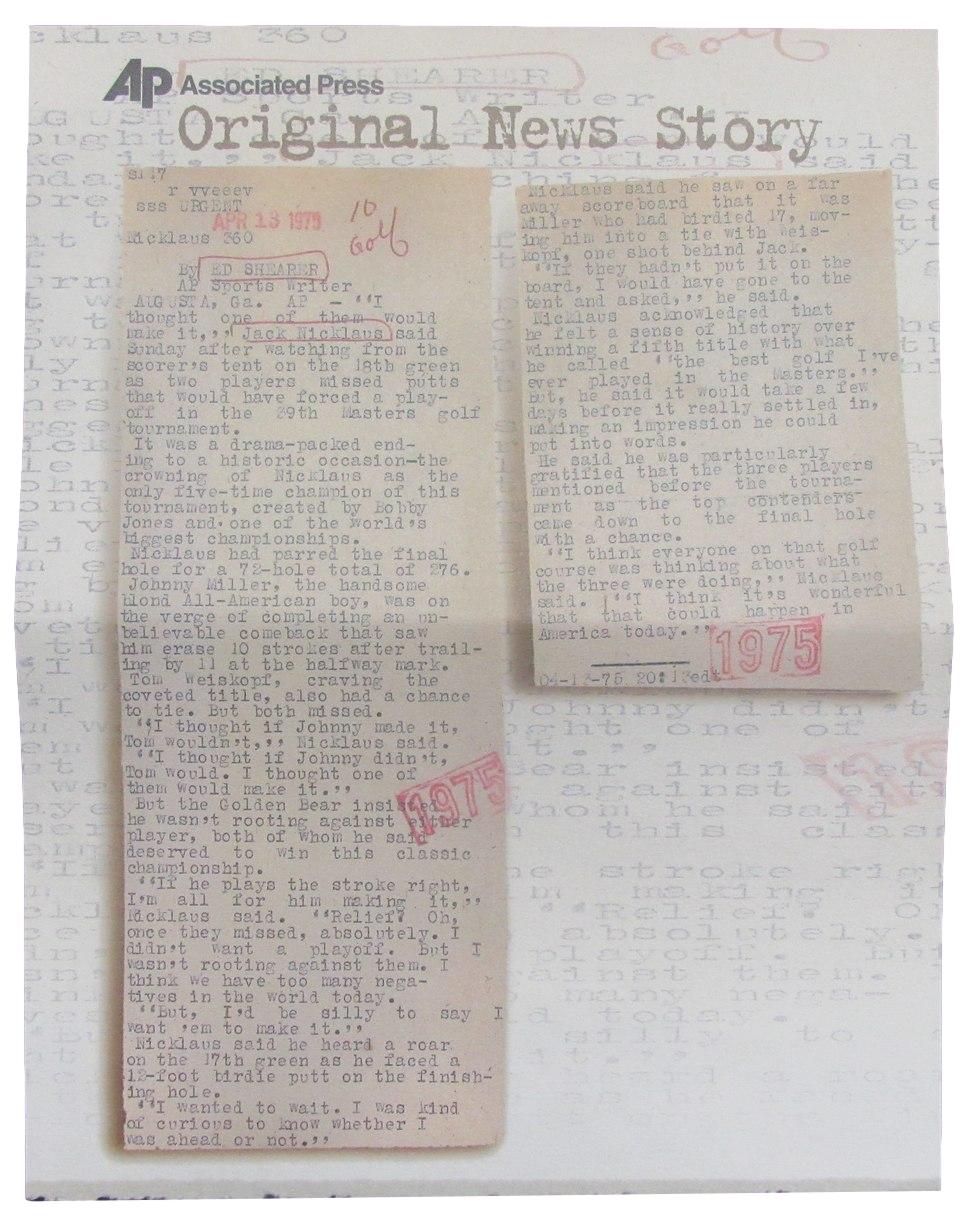 AP Associated Press
Original News Story
r vveeev
sss URGENT
APR 13 1975
10
Golf
Nicklaus 360
By ED SHEARER
AP Sports Writer
AUGUSTA, Ga. AP – ‘‘I
thought one of them would
make it,’’ Jack Nicklaus said
Sunday after watching from the
scorer's tent on the 18th green
as two players missed putts
that would have forced a play-
off in the 39th Masters golf
tournament.
It was a drama-packed end-
ing to a historic occasion—the
crowning of Nicklaus as the
only five-time champion of this
tournament, created by Bobby
Jones and one of the world's
biggest championships.
Nicklaus had parred the final
hole for a 72-hole total of 276.
Johnny Miller, the handsome
blond All-American boy, was on
the verge of completing an un-
believable comeback that saw
him erase 10 strokes after trail-
ing by 11 at the halfway mark.
Tom Weiskopf, craving the
coveted title, also had a chance
to tie. But both missed.
‘‘I thought if Johnny made it,
Tom wouldn't,’’ Nicklaus said.
‘‘I thought if Johnny didn't,
Tom would. I thought one of
them would make it.’’
But the Golden Bear insisted
he wasn't rooting against either
player, both of whom he said
deserved to win this classic
championship.
‘‘If he plays the stroke right,
I'm all for him making it,’’
Nicklaus said. ‘‘Relief? Oh,
once they missed, absolutely. I
didn't want a playoff. But I
wasn't rooting against them. I
think we have too many nega-
tives in the world today.
‘‘But, I'd be silly to say I
want 'em to make it.’’
Nicklaus said he heard a roar
on the 17th green as he faced a
12-foot birdie putt on the finish-
ing hole.
‘‘I wanted to wait. I was kind
of curious to know whether I
was ahead or not.’’
1975
Nicklaus said he saw on a far
away scoreboard that it was
Miller who had birdied 17, mov-
ing him into a tie with Weis-
kopf, one shot behind Jack.
‘‘If they hadn't put it on the
board, I would have gone to the
tent and asked,’’ he said.
Nicklaus acknowledged that
he felt a sense of history over
winning a fifth title with what
he called ‘‘the best golf I've
ever played in the Masters.’’
But, he said it would take a few
days before it really settled in,
making an impression he could
put into words.
He said he was particularly
gratified that the three players
mentioned before the tourna-
ment as the top contenders
came down to the final hole
with a chance.
‘‘I think everyone on that golf
course was thinking about what
the three were doing,’’ Nicklaus
said. ‘‘I think it's wonderful
that that could happen in
America today.’’
1975